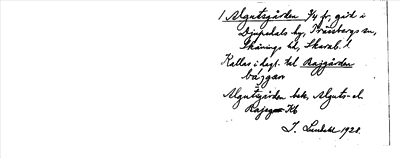 1 Algutsgården 3/4 fr, gård i
Djupedals by, Transbergs sn,
Skånings hd, Skarab. l.
Kallas i dagl. tal Razgården
bázgan
Algutsgården bek, Alguts- el.
Razega- Kb
J. Lindahl 1928.